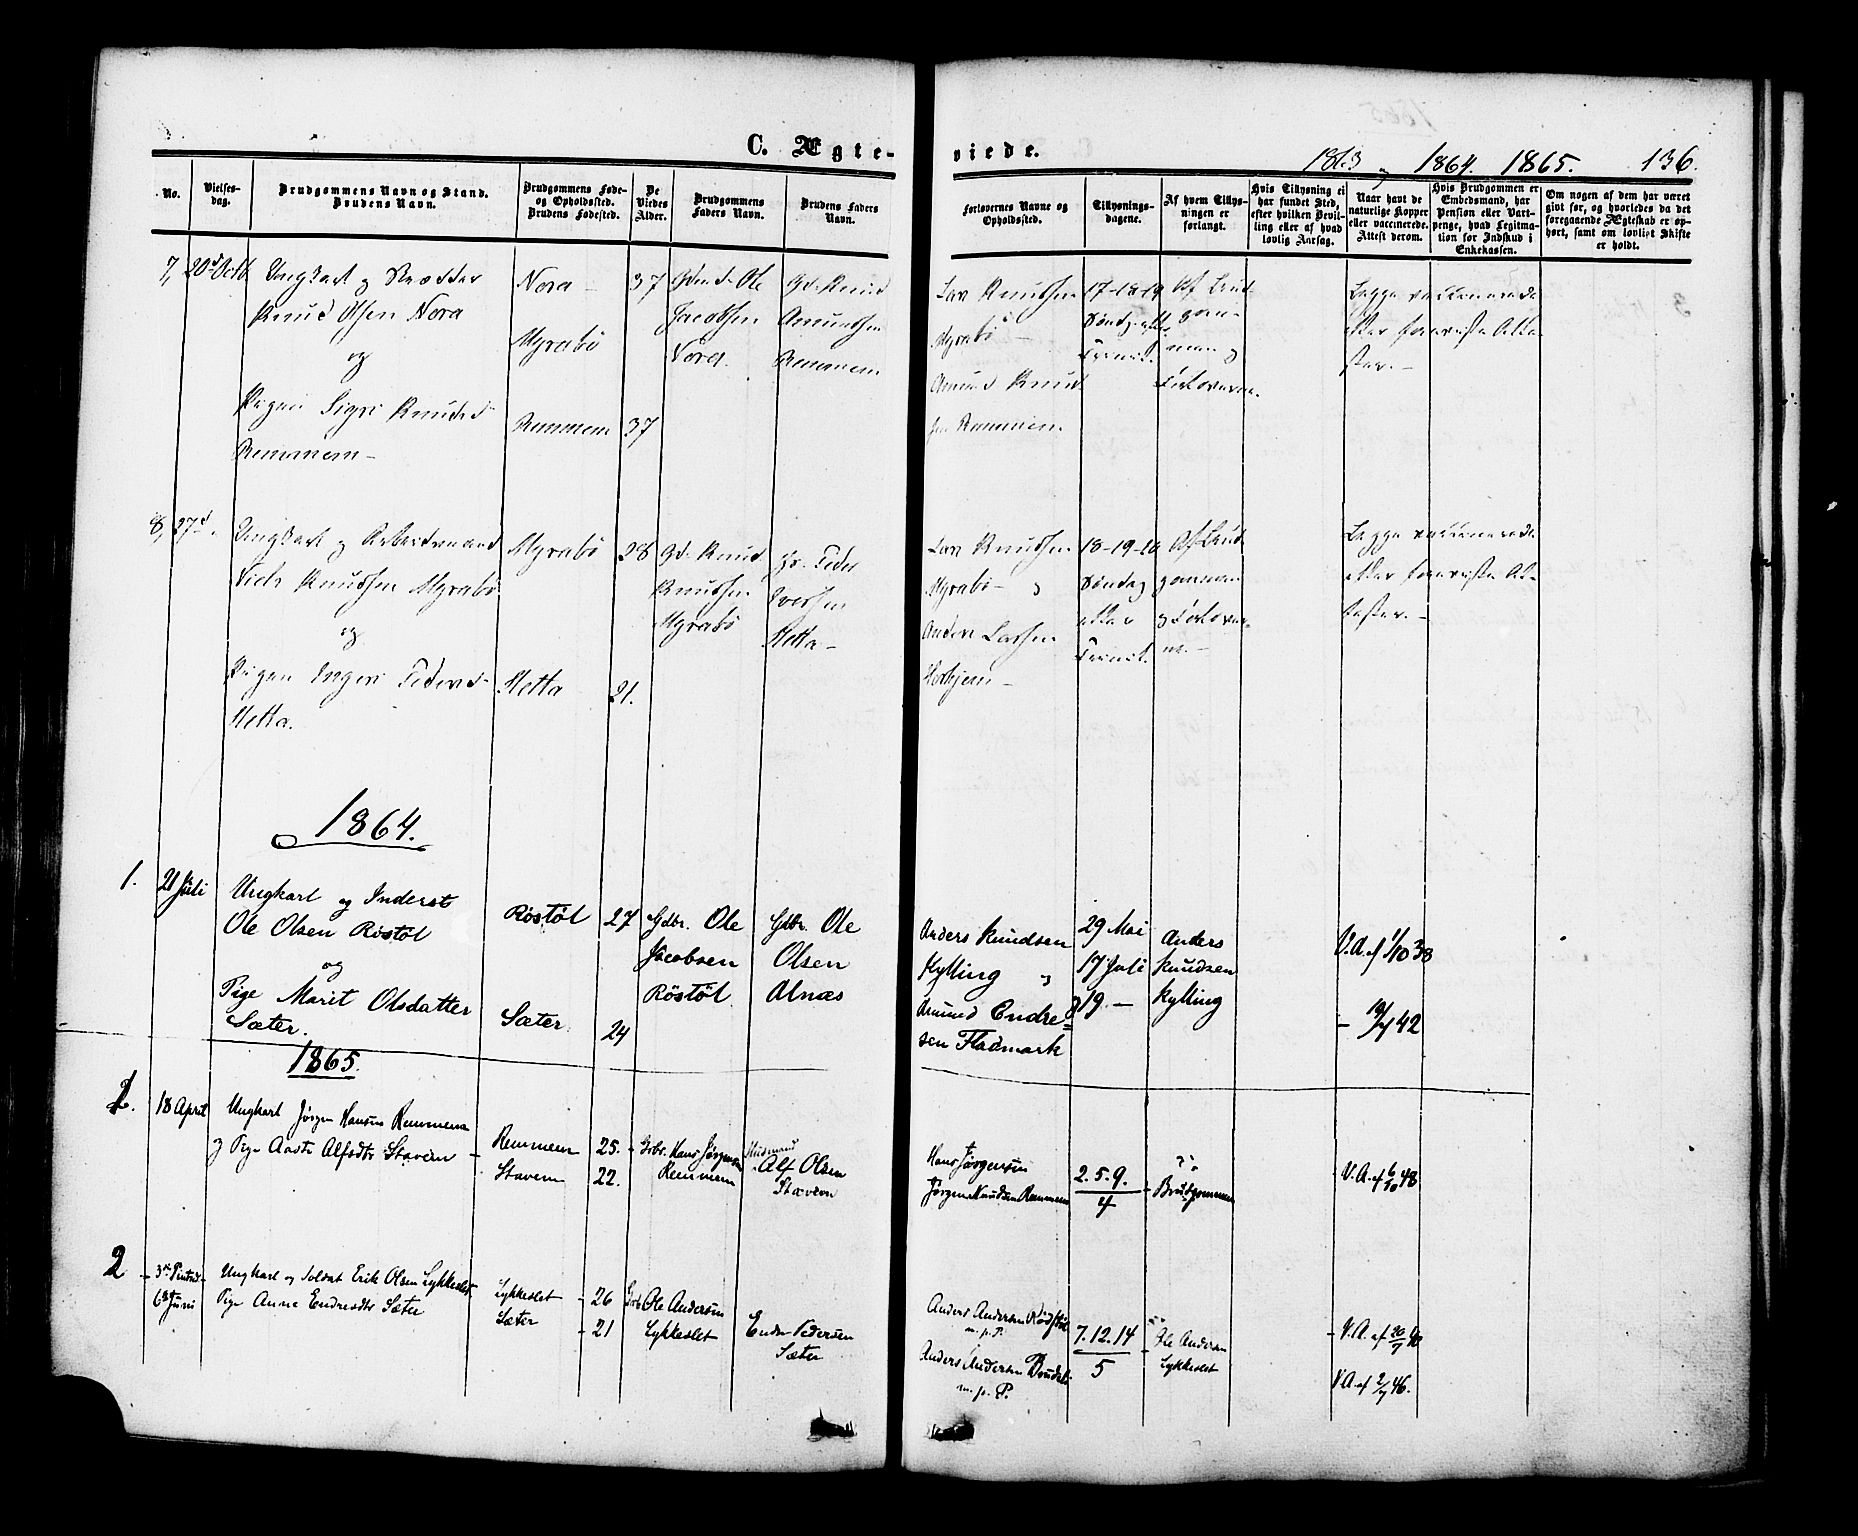 C. Ægte-
viede.
1863 og 1864. 1865. 136.
No.
Vielses-
dag.
Brudgommens Navn og Stand.
Brudens Navn.
Brudgommens Føde-
og Opholdssted.
Brudens Fødested.
De
Viedes
Alder.
Brudgommens
Faders Navn.
Brudens Faders
Navn.
Forlovernes Navne og
Opholdssted.
Tillysnings-
dagene.
Af hvem Tillys-
ningen er
forlangt.
Hvis Tillysning ei
har fundet Sted,
efter hvilken Bevil-
ling eller af hvad
lovlig Aarsag.
Naar havt de
naturlige Kopper
eller vaccinerede.
Attest derom.
Hvis Brudgommen er
Embedsmand, har
Pension eller Vart-
penge, hvad Legitima-
tion for Indskud i
Enkekassen.
Om nogen af dem har været
givt før, og hvorledes da det
foregaaende Ægteskab er op-
hørt, samt om lovligt Skifte
er holdt.
7, 20d Octb
Ungkarl og
Knud Olsen Nora
og
Pigen Sigri Knudsd
Remmem-
Nora -
Myrabö
Remmem
37
37
Gdmd. Ole
Jacobsen
Nora.
Gd. Knud
Amundsen
Remmem
Lars Knudsen
Myrabö -
Amund Knud-
sen Remmem.
17-18-19
Söndg. efter
Trinit.
Af Brud-
gom-
men og
Forloverne.
Begge vaccinerede
efter foreviste Atte-
ster. -
8, 27d.
Ungkarl og Arbeidsmand
Niels Knudsen Myrabö
og
Pigen Ingeri Peders-
Metta.
Myrabö
Metta
28
21.
Gd. Knud
Knudsen
Myrabö
Gd. Peder
Iversen
Metta -
Lars Knudsen
Myrabö - og
Anders Larsen
Horhjem -
18-19-20
Söndag
efter
Trinit.
Af Brud-
gommen
og Forlover-
ne. -
Begge vaccinerede
efter foreviste At-
tester. -
1864.
1. 21 Juli
Ungkarl og Inderst
Ole Olsen Röstöl
og
Pige Marit Olsdatter
Sæter.
Röstöl
Sæter.
27
24
Gdbr. Ole
Jacobsen
Röstöl
Gdbr. Ole
Olsen
Alnæs
Anders Knudsen
Kylling og
Amund Endre-
sen Fladmark
29 Mai
17 Juli
19. -
Anders
Knudsen
Kylling
V.A. af 1/10 38
- 19/7 42
1865.
1. 18 April
Ungkarl Jørgen Hansen Remmem
og Pige Aaste Alfsdtr Stavem
Remmem
Stavem
25.
22.
Grbr. Hans Jørgensen
Remmem
Husmand
Alf Olsen
Stavem
Hans Jørgensen
Jørgen Knudsen Remmem
2. 5. 9.
4
Brudgommen
V.A. af 6/10 48
2 3die Pintsd.
6te Juni
Ungkarl og Soldat Erik Olsen Lykkeslet
Pige Anne Endresdtr Sæter
Lykkeslet
Sæter
26
21
Grbr Ole Andersen
Lykkeslet
Endre Pedersen
Sæter
Anders Andersen Rödstöl
m. p. P.
Anders Andersen Brudeli
m. p. P.
7. 12. 14
5
Ole Andersen
Lykkeslet
V.A. af
V.A. af 2/7 46.